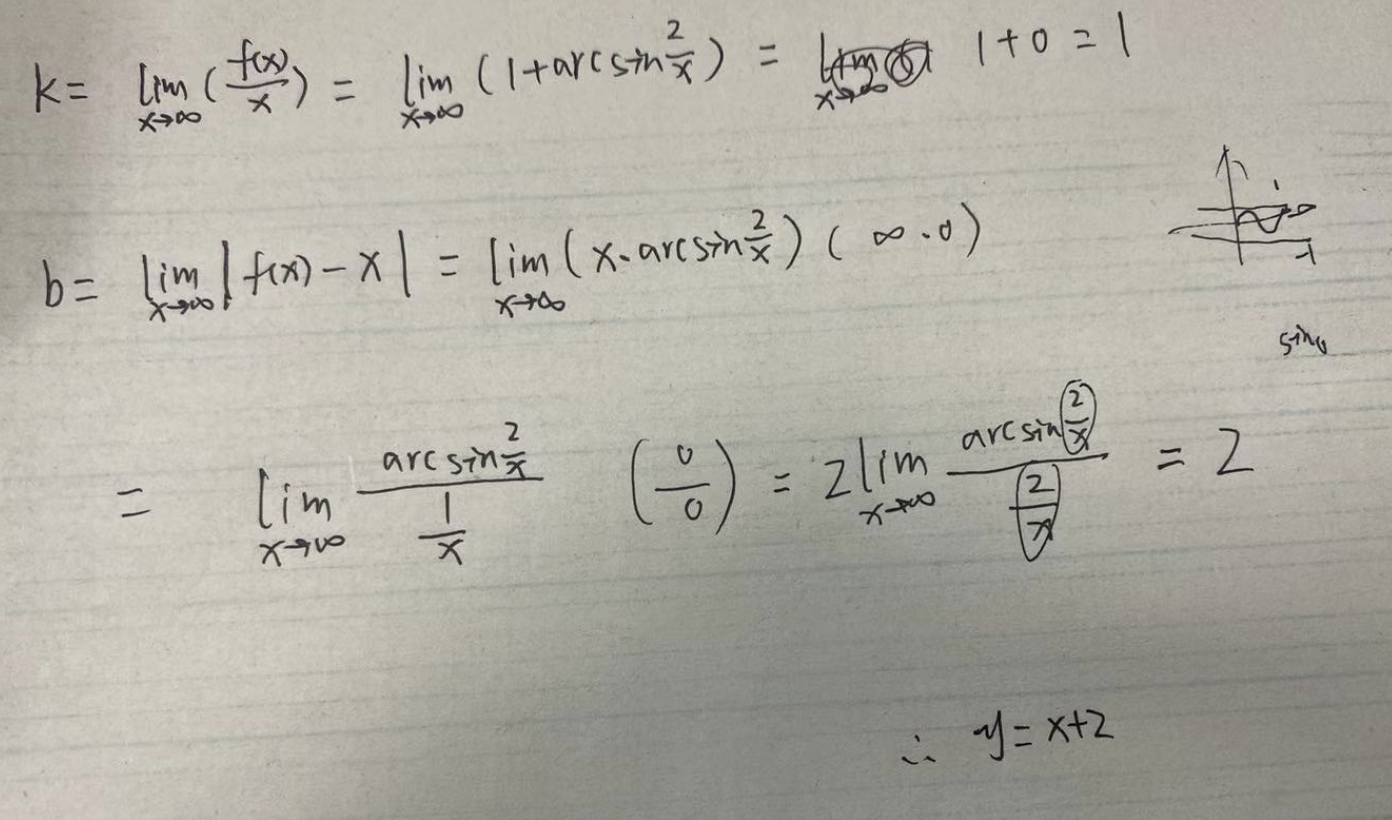 k = lim x→∞ (f(x)/x) = lim x→∞ (1+arcsin 2/x) = 1+0=1
b = lim x→∞ |f(x)-x| = lim x→∞ (x·arcsin 2/x) (∞·0)
sin
= lim x→∞ arcsin 2/x / 1/x (0/0) = 2 lim x→∞ arcsin 2/x / 2/x = 2
∴ y=x+2